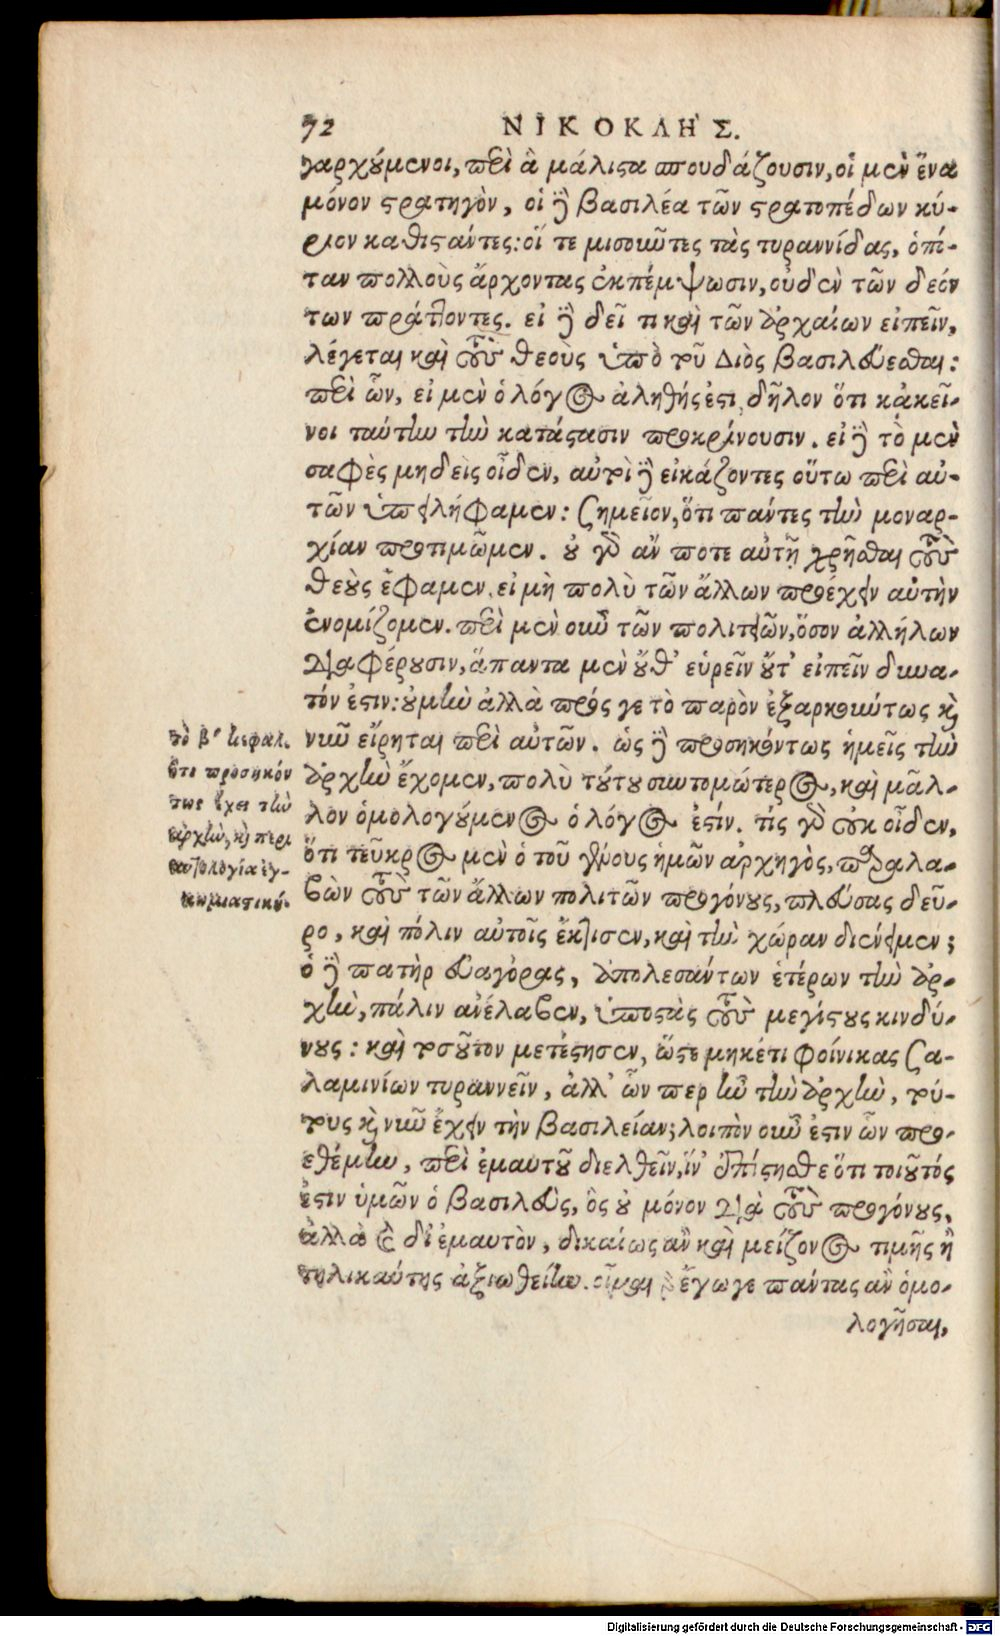 72 ΝΙΚΟΚΛΗ Σ.
γαρχούμενοι, περὶ ἃ μάλιστα σπουδάζουσιν, οἱ μὲν ἕνα
μόνον στρατηγὸν, οἱ δὲ βασιλέα τῶν στρατοπέδων κύ-
ριον καθιστάντες: οἵ τε μισοιῶτες τὰς τυραννίδας, ὁπό-
ταν πολλοὺς ἄρχοντας ἐκπέμψωσιν, οὐδὲν τῶν δεόν
των πράττοντες. εἰ δὲ δεῖ τι καὶ τῶν ἀρχαίων εἰπεῖν,
λέγεται καὶ τοὺς θεοὺς ὑπὸ τοῦ Διὸς βασιλεύεσθαι:
περὶ ὧν, εἰ μὲν ὁ λόγος ἀληθής ἐστι, δῆλον ὅτι κἀκεῖ-
νοι ταύτην τὴν κατάστασιν προκρίνουσιν. εἰ δὲ τὸ μὲν
σαφὲς μηδεὶς οἶδεν, αὐτοὶ δὲ εἰκάζοντες οὕτω περὶ αὐ-
τῶν ὑπειλήφαμεν: σημεῖον, ὅτι πάντες τὴν μοναρ-
χίαν προτιμῶμεν. οὐ γὰρ ἄν ποτε αὐτῇ χρῆσθαι τοὺς
θεοὺς ἔφαμεν, εἰ μὴ πολὺ τῶν ἄλλων προέχειν αὐτὴν
ἐνομίζομεν. περὶ μὲν οὖν τῶν πολιτειῶν, ὅσον ἀλλήλων
διαφέρουσιν, ἅπαντα μὲν οὔθ' εὑρεῖν οὔτ' εἰπεῖν δυνα-
τόν ἐστιν: οὐμὴν ἀλλὰ πρός γε τὸ παρὸν ἐξαρκούντως καὶ
νῦν εἴρηται περὶ αὐτῶν. ὡς δὲ προσηκόντως ἡμεῖς τὴν
ἀρχὴν ἔχομεν, πολὺ τούτου συντομώτερος, καὶ μᾶλ-
λον ὁμολογούμενος ὁ λόγος ἐστίν. τίς γὰρ οὐκ οἶδεν,
ὅτι τεῦκρος μὲν ὁ τοῦ γένους ἡμῶν ἀρχηγὸς, παραλα-
βὼν τοὺς τῶν ἄλλων πολιτῶν προγόνους, πλεύσας δεῦ-
ρο, καὶ πόλιν αὐτοῖς ἔκτισεν, καὶ τὴν χώραν διένειμεν;
ὁ δὲ πατὴρ εὐαγόρας, ἀπολεσάντων ἑτέρων τὴν ἀρ-
χὴν, πάλιν ἀνέλαβεν, ὑποστὰς τοὺς μεγίστους κινδύ-
νους: καὶ τοσοῦτον μετέστησεν, ὥστε μηκέτι φοίνικας Σα-
λαμινίων τυραννεῖν, ἀλλ' ὧν περ ἦν τὴν ἀρχὴν, τού-
τους καὶ νῦν ἔχειν τὴν βασιλείαν; λοιπὸν οὖν ἐστιν ὧν προ-
εθέμην, περὶ ἐμαυτοῦ διελθεῖν, ἵν' ἐπίστησθε ὅτι τοιοῦτός
ἐστιν ὑμῶν ὁ βασιλεὺς, ὃς οὐ μόνον διὰ τοὺς προγόνους,
ἀλλὰ καὶ δι' ἐμαυτὸν, δικαίως ἂν καὶ μείζονος τιμῆς ἢ
τηλικαύτης ἀξιωθείην. οἶμαι δὲ ἔγωγε πάντας ἂν ὁμο-
λογῆσαι,
τὸ β' κεφάλ.
ὅτι προσηκόν
τως ἔχει τὴν
ἀρχὴν, καὶ περι
αυτολογία ἐγ-
κωμιαστική.
Digitalisierung gefördert durch die Deutsche Forschungsgemeinschaft - DFG